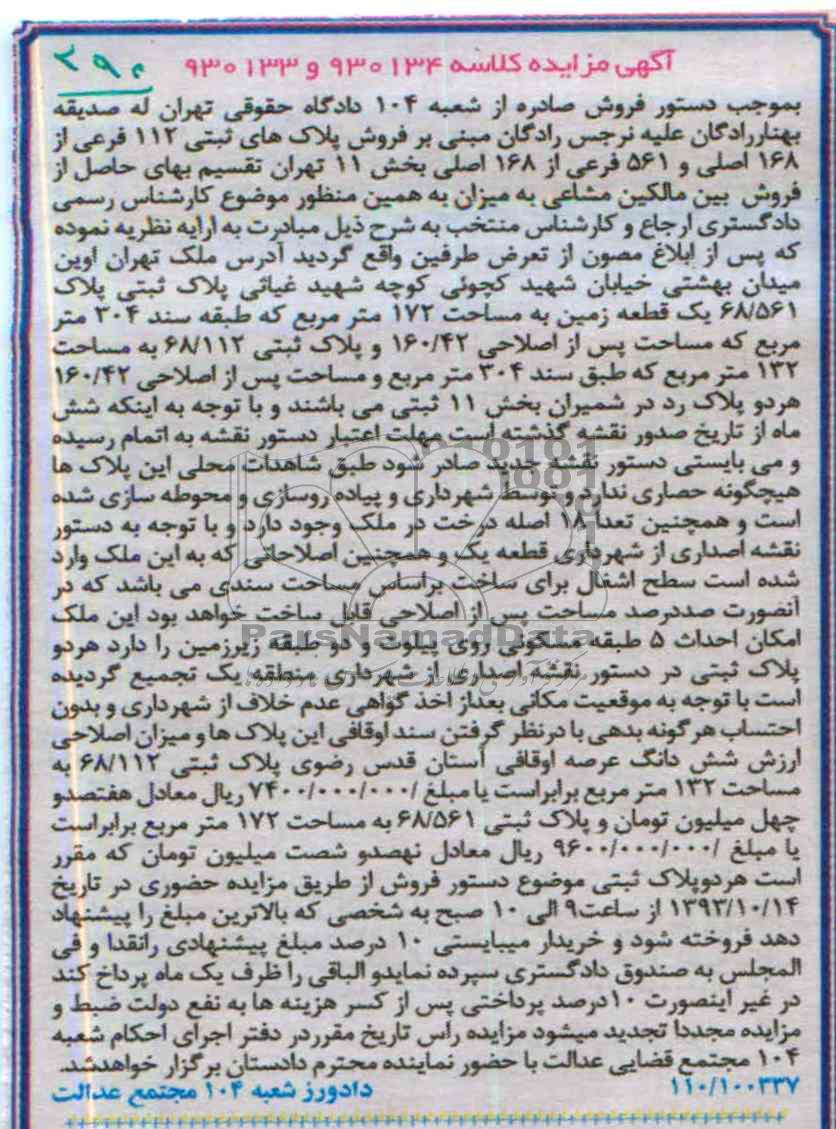 آگهی مزایده کلاسه ۹۳۰۱۳۴ و ۹۳۰۱۳۳
۲۹۰
بموجب دستور فروش صادره از شعبه ۱۰۴ دادگاه حقوقی تهران له صدیقه
بهنار‌رادگان علیه نرجس رادگان مبنی بر فروش پلاک های ثبتی ۱۱۲ فرعی از
۱۶۸ اصلی و ۵۶۱ فرعی از ۱۶۸ اصلی بخش ۱۱ تهران تقسیم بهای حاصل از
فروش بین مالکین مشاعی به میزان به همین منظور موضوع کارشناس رسمی
دادگستری ارجاع و کارشناس منتخب به شرح ذیل مبادرت به ارایه نظریه نموده
که پس از ابلاغ مصون از تعرض طرفین واقع گردید آدرس ملک تهران اوین
میدان بهشتی خیابان شهید کچوئی کوچه شهید غیاثی پلاک ثبتی پلاک
۶۸/۵۶۱ یک قطعه زمین به مساحت ۱۷۲ متر مربع که طبقه سند ۳۰۴ متر
مربع که مساحت پس از اصلاحی ۱۶۰/۴۲ و پلاک ثبتی ۶۸/۱۱۲ به مساحت
۱۳۲ متر مربع که طبق سند ۳۰۴ متر مربع و مساحت پس از اصلاحی ۱۶۰/۴۲
هردو پلاک رد در شمیران بخش ۱۱ ثبتی می باشند و با توجه به اینکه شش
ماه از تاریخ صدور نقشه گذشته است مهلت اعتبار دستور نقشه به اتمام رسیده
و می بایستی دستور نقشه جدید صادر شود طبق شاهدات محلی این پلاک ها
هیچگونه حصاری ندارد و توسط شهرداری و پیاده روسازی و محوطه سازی شده
است و همچنین تعدا ۱۸ اصله درخت در ملک وجود دارد و با توجه به دستور
نقشه اصداری از شهرداری قطعه یک و همچنین اصلاحاتی که به این ملک وارد
شده است سطح اشغال برای ساخت براساس مساحت سندی می باشد که در
آنصورت صددرصد مساحت پس از اصلاحی قابل ساخت خواهد بود این ملک
امکان احداث ۵ طبقه مسکونی روی پیلوت و دو طبقه زیرزمین را دارد هردو
پلاک ثبتی در دستور نقشه اصداری از شهرداری منطقه یک تجمیع گردیده
است با توجه به موقعیت مکانی بعداز اخذ گواهی عدم خلاف از شهرداری و بدون
احتساب هرگونه بدهی با درنظر گرفتن سند اوقافی این پلاک ها و میزان اصلاحی
ارزش شش دانگ عرصه اوقافی آستان قدس رضوی پلاک ثبتی ۶۸/۱۱۲ به
مساحت ۱۳۲ متر مربع برابراست یا مبلغ ۷۴۰۰/۰۰۰/۰۰۰/ ریال معادل هفتصدو
چهل میلیون تومان و پلاک ثبتی ۶۸/۵۶۱ به مساحت ۱۷۲ متر مربع برابراست
یا مبلغ ۹۶۰۰/۰۰۰/۰۰۰/ ریال معادل نهصدو شصت میلیون تومان که مقرر
است هردوپلاک ثبتی موضوع دستور فروش از طریق مزایده حضوری در تاریخ
۱۳۹۳/۱۰/۱۴ از ساعت۹ الی ۱۰ صبح به شخصی که بالاترین مبلغ را پیشنهاد
دهد فروخته شود و خریدار میبایستی ۱۰ درصد مبلغ پیشنهادی رانقدا و فی
المجلس به صندوق دادگستری سپرده نمایدو الباقی را ظرف یک ماه پرداخ کند
در غیر اینصورت ۱۰درصد پرداختی پس از کسر هزینه ها به نفع دولت ضبط و
مزایده مجددا تجدید میشود مزایده راس تاریخ مقرردر دفتر اجرای احکام شعبه
۱۰۴ مجتمع قضایی عدالت با حضور نماینده محترم دادستان برگزار خواهدشد.
۱۱۰/۱۰۰۳۳۷ دادورز شعبه ۱۰۴ مجتمع عدالت
ParsNamadData